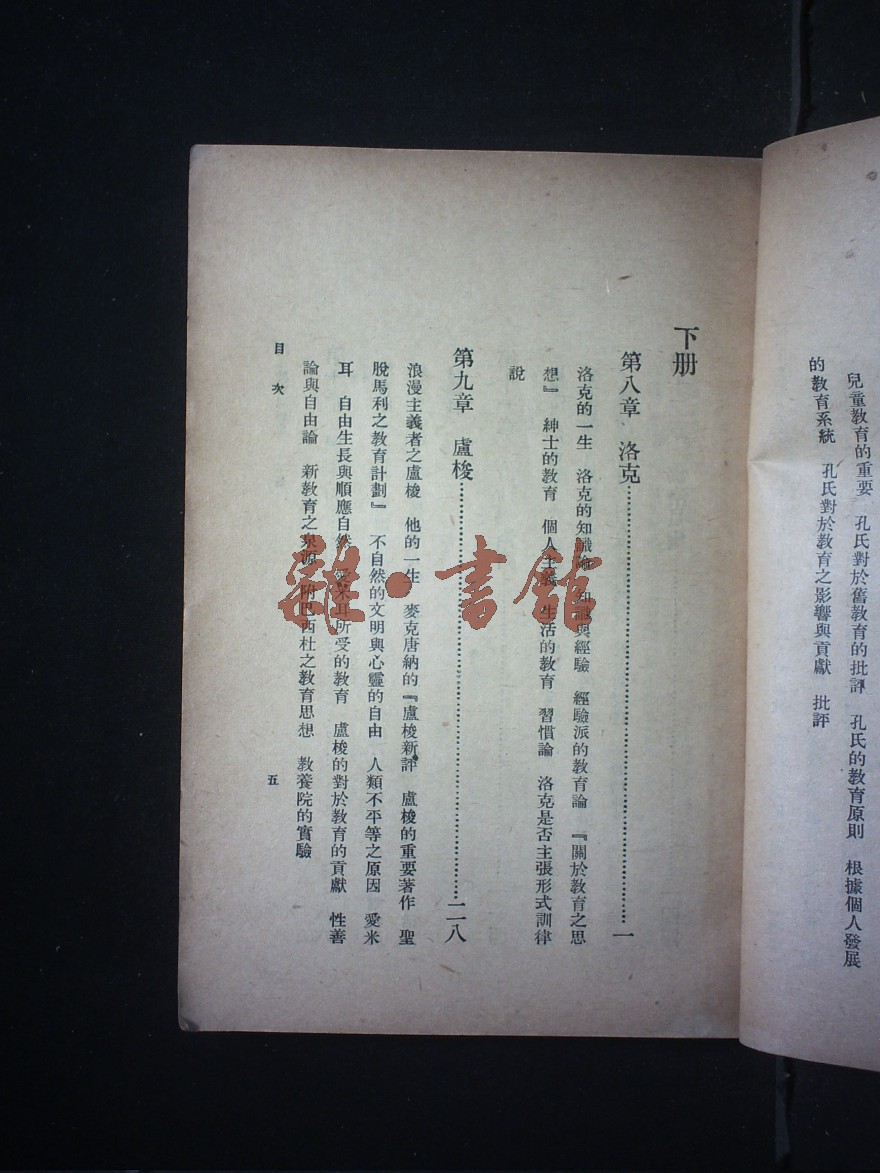 兒童教育的重要　孔氏對於舊教育的批評　孔氏的教育原則　根據個人發展
的教育系統　孔氏對於教育之影響與貢獻　批評
下册
第八章　洛克…………一
洛克的一生　洛克的知識論　知識與經驗　經驗派的教育論　『關於教育之思
想』　紳士的教育　個人主義　生活的教育　習慣論　洛克是否主張形式訓律
說
第九章　盧梭…………一二八
浪漫主義者之盧梭　他的一生　麥克唐納的『盧梭新評　盧梭的重要著作　聖
脫馬利之教育計劃』　不自然的文明與心靈的自由　人類不平等之原因　愛米
耳　自由生長與順應自然　愛米耳所受的教育　盧梭的對於教育的貢獻　性善
論與自由論　新教育之泉源　附巴西杜之教育思想　教養院的實驗
目次
五
雜·書館